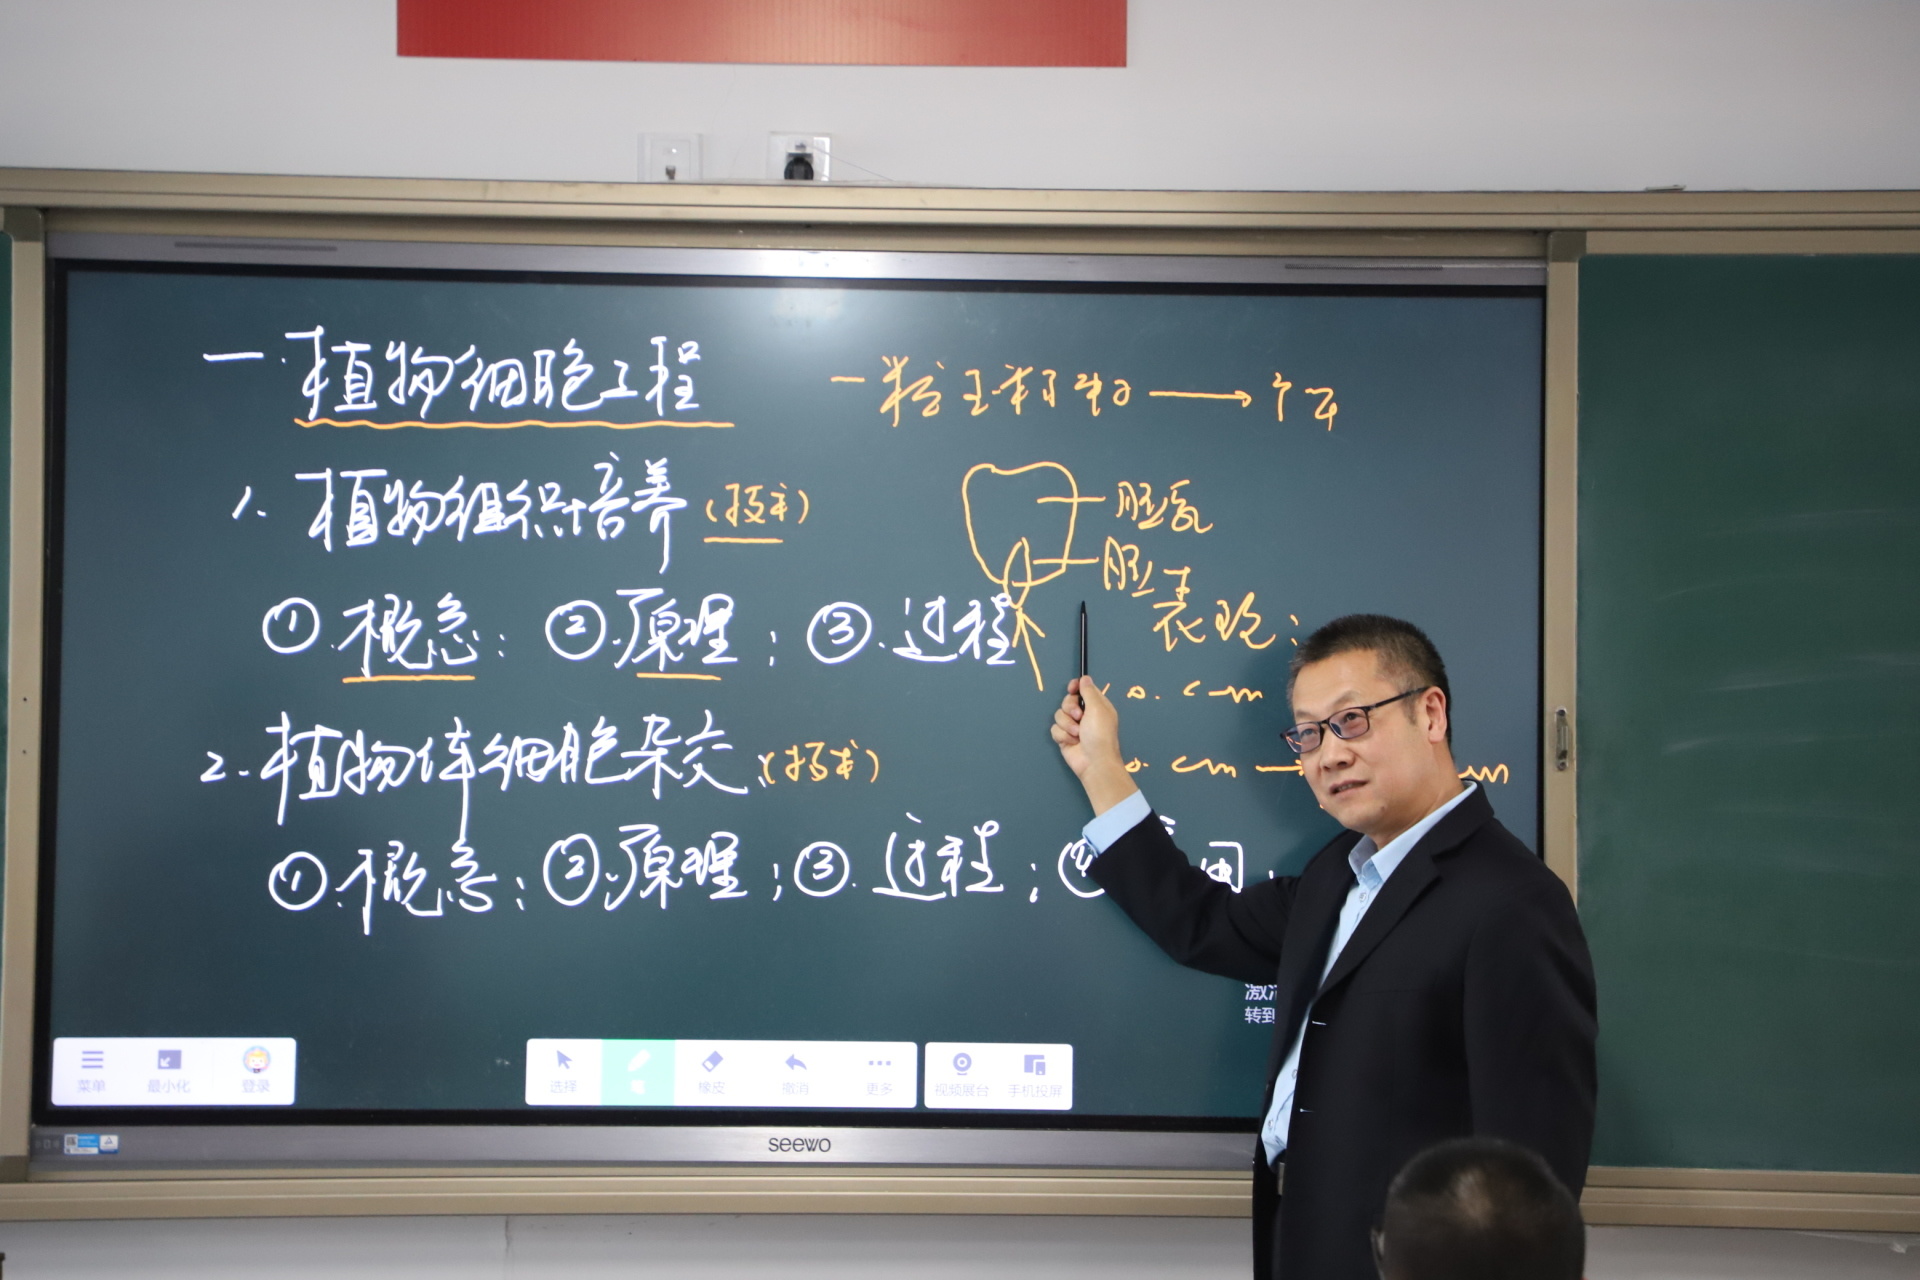 一.植物细胞工程
1.植物组织培养(技术)
①.概念：②.原理；③.过程
2.植物体细胞杂交(技术)
①.概念；②.原理；③.过程；④
用
一粒玉米籽粒→个
胚乳
胚
表现：
0.cm
cm→
激活
转到
菜单 最小化 登录
选择 笔 橡皮 撤消 更多
视频展台 手机投屏
seewo